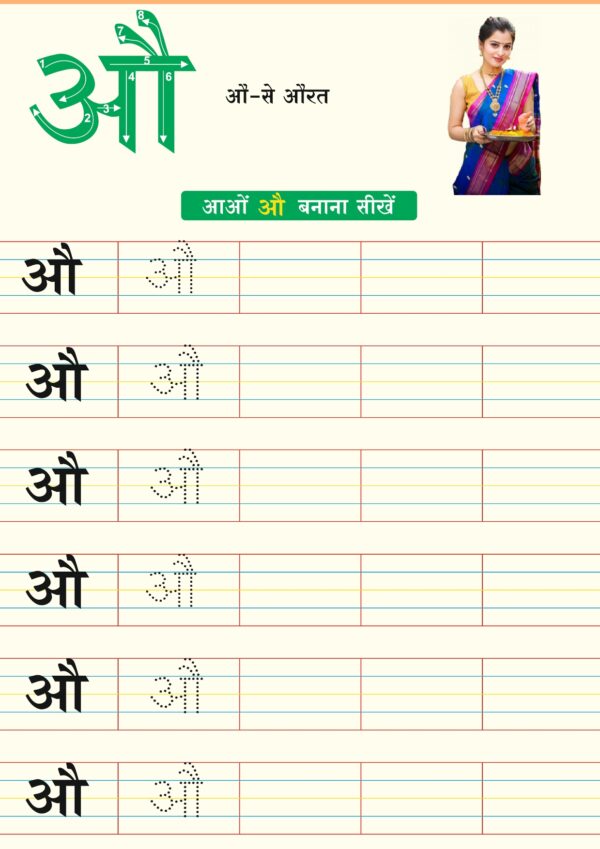 औ
1 2 3 4 5 6 7 8
औ-से औरत
आओं औ बनाना सीखें
औ औ
औ औ
औ औ
औ औ
औ औ
औ औ